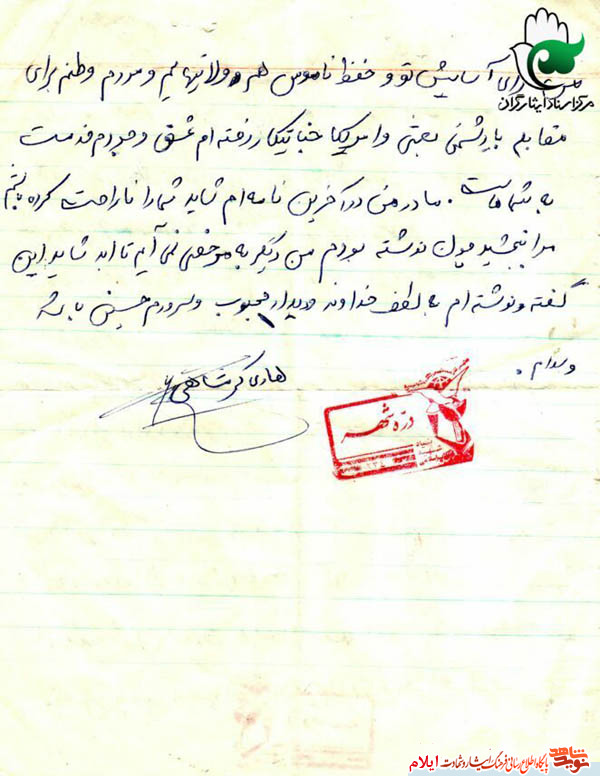 مرکز اسناد ایثارگران
برای آسایش تو و حفظ ناموس هم ولایتهایم و مردم وطنم برای
مقابله با دشمنی بعثی و امریکا جنایتکار رفته ام عشق وجودم خدمت
به شماست. مادر من در آخرین نامه ام شاید شما را ناراحت کرده باشم
مرا ببخشید چون نوشته بودم من دیگر به مرخصی نمی آیم تا ابد شاید این
گفته و نوشته ام با لطف خداوند دیدار محبوب و سرورم حسین باشد
والسلام.
هادی کرمشاهی
دره شهر
بنیاد
شهید
نوید شاهد
پایگاه اطلاع رسانی فرهنگ ایثار و شهادت ایلام